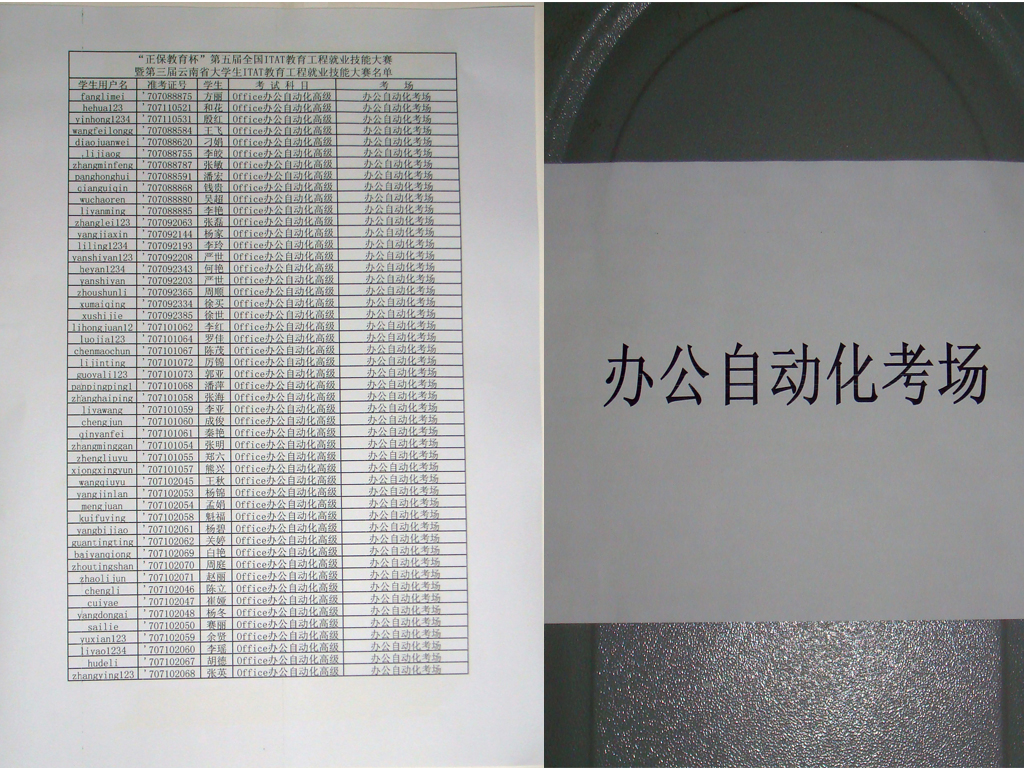 “正保教育杯”第五届全国ITAT教育工程就业技能大赛
暨第三届云南省大学生ITAT教育工程就业技能大赛名单
学生用户名 准考证号 学生 考 试 科 目 考 场
fanglimei '707088875 方丽 Office办公自动化高级 办公自动化考场
hehua123 '707110521 和花 Office办公自动化高级 办公自动化考场
yinhong1234 '707110531 殷红 Office办公自动化高级 办公自动化考场
wangfeilongg '707088584 王飞 Office办公自动化高级 办公自动化考场
diaojuanwei '707088620 刁娟 Office办公自动化高级 办公自动化考场
.lijiaog '707088755 李皎 Office办公自动化高级 办公自动化考场
zhangminfeng '707088787 张敏 Office办公自动化高级 办公自动化考场
panghonghui '707088591 潘宏 Office办公自动化高级 办公自动化考场
qianguiqin '707088868 钱贵 Office办公自动化高级 办公自动化考场
wuchaoren '707088880 吴超 Office办公自动化高级 办公自动化考场
liyanming '707088885 李艳 Office办公自动化高级 办公自动化考场
zhanglei123 '707092063 张磊 Office办公自动化高级 办公自动化考场
yangjiaxin '707092144 杨家 Office办公自动化高级 办公自动化考场
liling1234 '707092193 李玲 Office办公自动化高级 办公自动化考场
yanshiyan123 '707092208 严世 Office办公自动化高级 办公自动化考场
heyan1234 '707092343 何艳 Office办公自动化高级 办公自动化考场
yanshiyan '707092203 严世 Office办公自动化高级 办公自动化考场
zhoushunli '707092365 周顺 Office办公自动化高级 办公自动化考场
xumaiqing '707092334 徐买 Office办公自动化高级 办公自动化考场
xushijie '707092385 徐世 Office办公自动化高级 办公自动化考场
lihongjuan12 '707101062 李红 Office办公自动化高级 办公自动化考场
luojia123 '707101064 罗佳 Office办公自动化高级 办公自动化考场
chenmaochun '707101067 陈茂 Office办公自动化高级 办公自动化考场
lijinting '707101072 厉锦 Office办公自动化高级 办公自动化考场
guoyali123 '707101073 郭亚 Office办公自动化高级 办公自动化考场
panpingping1 '707101068 潘萍 Office办公自动化高级 办公自动化考场
zhanghaiping '707101058 张海 Office办公自动化高级 办公自动化考场
liyawang '707101059 李亚 Office办公自动化高级 办公自动化考场
chengjun '707101060 成俊 Office办公自动化高级 办公自动化考场
qinyanfei '707101061 秦艳 Office办公自动化高级 办公自动化考场
zhangminggan '707101054 张明 Office办公自动化高级 办公自动化考场
zhengliuyu '707101055 郑六 Office办公自动化高级 办公自动化考场
xiongxingyun '707101057 熊兴 Office办公自动化高级 办公自动化考场
wangqiuyu '707102045 王秋 Office办公自动化高级 办公自动化考场
yangjinlan '707102053 杨锦 Office办公自动化高级 办公自动化考场
mengjuan '707102054 孟娟 Office办公自动化高级 办公自动化考场
kuifuying '707102058 魁福 Office办公自动化高级 办公自动化考场
yangbijiao '707102061 杨碧 Office办公自动化高级 办公自动化考场
guantingting '707102062 关婷 Office办公自动化高级 办公自动化考场
baiyanqiong '707102069 白艳 Office办公自动化高级 办公自动化考场
zhoutingshan '707102070 周庭 Office办公自动化高级 办公自动化考场
zhaolijun '707102071 赵丽 Office办公自动化高级 办公自动化考场
chengli '707102046 陈立 Office办公自动化高级 办公自动化考场
cuiyae '707102047 崔娅 Office办公自动化高级 办公自动化考场
yangdongai '707102048 杨冬 Office办公自动化高级 办公自动化考场
sailie '707102050 赛丽 Office办公自动化高级 办公自动化考场
yuxian123 '707102059 余贤 Office办公自动化高级 办公自动化考场
liyao1234 '707102060 李瑶 Office办公自动化高级 办公自动化考场
hudeli '707102067 胡德 Office办公自动化高级 办公自动化考场
zhangying123 '707102068 张英 Office办公自动化高级 办公自动化考场
办公自动化考场